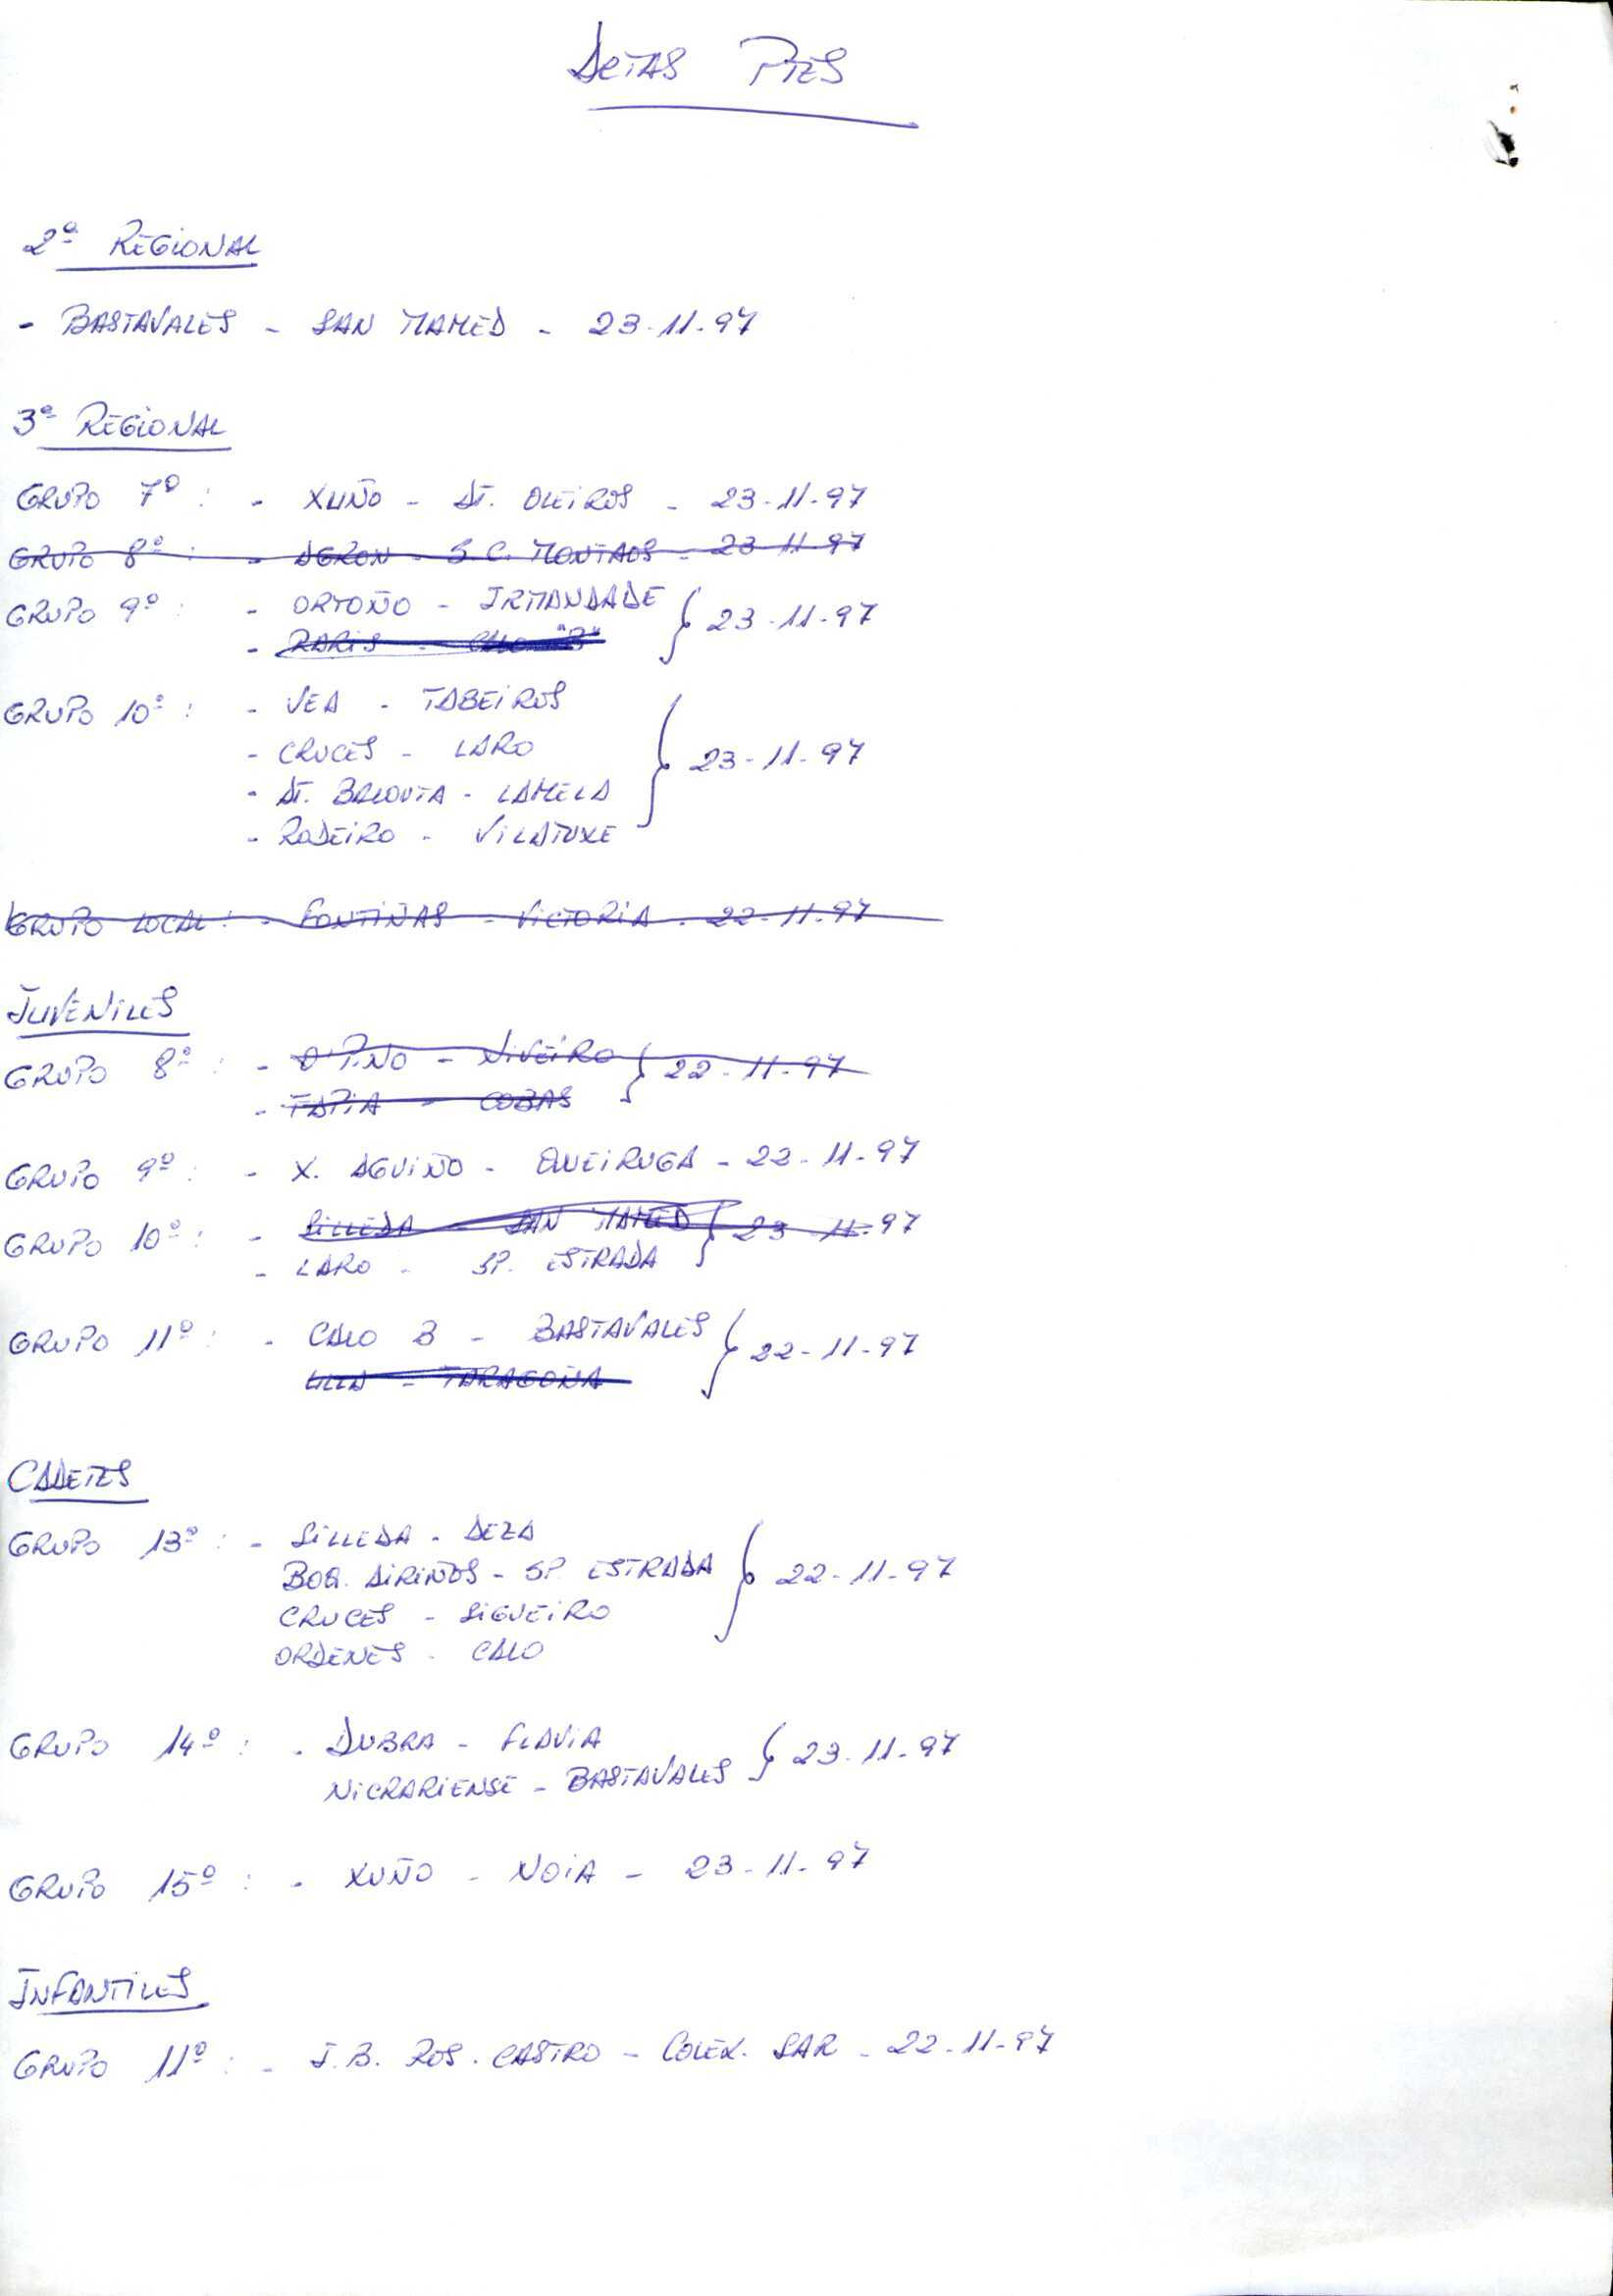 ACTAS PTES
2ª REGIONAL
- BASTAVALES - SAN MAMED - 23-11-97
3ª REGIONAL
GRUPO 7º : - XUÑO - AT. OLEIROS - 23-11-97
GRUPO 8º : - AGRON - S.C. MONTAOS - 23-11-97
GRUPO 9º : - ORTOÑO - IRMANDADE } 23-11-97
- PARIS - CALO "B"
GRUPO 10º : - VEA - TABEIROS
- CRUCES - LARO } 23-11-97
- AT. BALOUTA - LAMELA
- RODEIRO - VILATUXE
GRUPO LOCAL : - FONTIÑAS - VICTORIA - 22-11-97
JUVENILES
GRUPO 8º : - O PINO - NIVEIRO } 22-11-97
- TAPIA - COBAS
GRUPO 9º : - X. AGUIÑO - QUEIRUGA - 22-11-97
GRUPO 10º : - SILLEDA - SAN MAMED } 23-11-97
- LARO - SP. ESTRADA
GRUPO 11º : - CALO B - BASTAVALES } 22-11-97
ULLA - TARAGOÑA
CADETES
GRUPO 13º : - SILLEDA - DEZA
BOQ. AIRIÑOS - SP ESTRADA } 22-11-97
CRUCES - SIGUEIRO
ORDENES - CALO
GRUPO 14º : - DUBRA - FLAVIA } 23-11-97
NICRARIENSE - BASTAVALES
GRUPO 15º : - XUÑO - NOIA - 23-11-97
INFANTILES
GRUPO 11º : - I.B. ROS. CASTRO - COLEX. SAR - 22-11-97